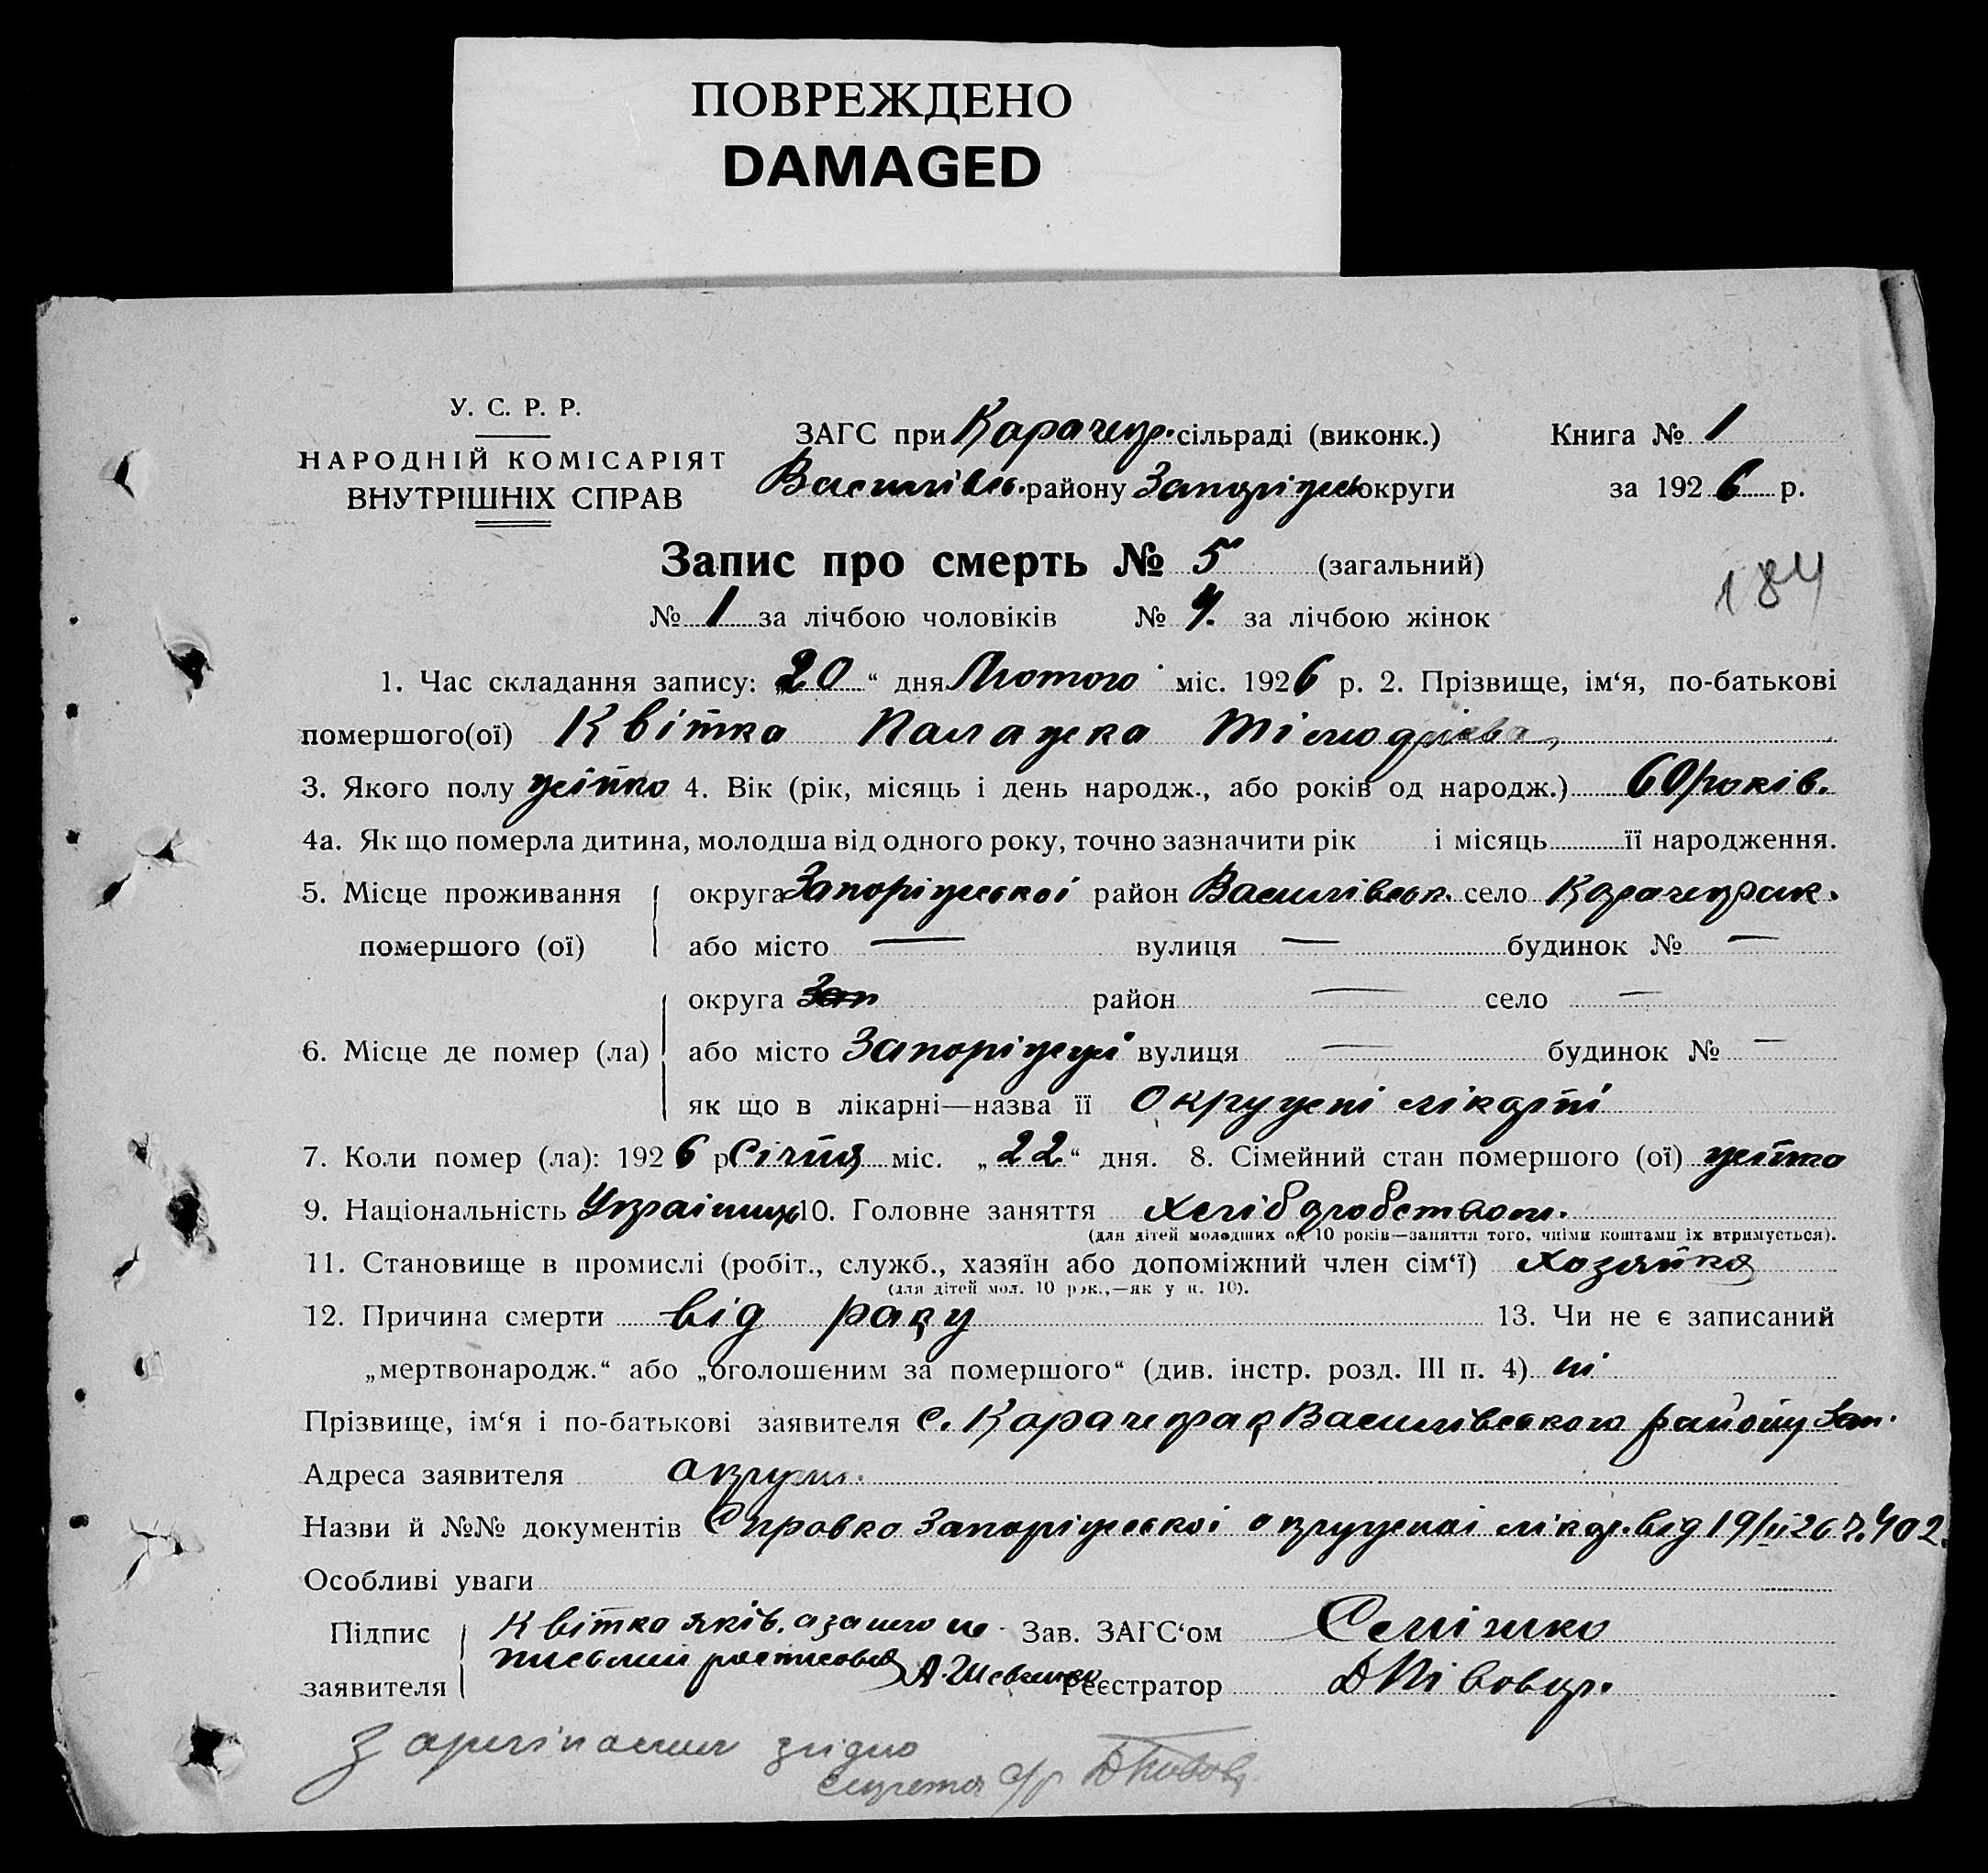 ПОВРЕЖДЕНО
DAMAGED
У. С. Р. Р.
НАРОДНІЙ КОМІСАРІЯТ
ВНУТРІШНІХ СПРАВ
ЗАГС при Карачекр. сільраді (виконк.)
Василівс. району Запоріжсь округи
Книга № 1
за 1926 р.
Запис про смерть № 5 (загальний)
№ 1 за лічбою чоловіків № 4. за лічбою жінок
184
1. Час складання запису: „20“ дня Лютого міс. 1926 р. 2. Прізвище, ім‘я, по-батькові
помершого(ої) Квітка Палажка
3. Якого полу жінка 4. Вік (рік, місяць і день народж., або років од народж.) 60 років.
4а. Як що померла дитина, молодша від одного року, точно зазначити рік і місяць її народження.
5. Місце проживання помершого (ої) округа Запоріжської район Василівськ. село Карачекрак.
або місто — вулиця — будинок № —
6. Місце де помер (ла) округа Зап район — село —
або місто Запоріжжі вулиця — будинок № —
як що в лікарні—назва її Окружні лікарні
7. Коли помер (ла): 1926 р Січня міс. „22“ дня. 8. Сімейний стан помершого (ої) жінка
9. Національність Українка 10. Головне заняття хліборобством.
(для дітей молодших од 10 років—заняття того, чиїми коштами їх втримується).
11. Становище в промислі (робіт., служб., хазяїн або допоміжний член сім‘ї) хозяйка
(для дітей мол. 10 рок.,—як у п. 10).
12. Причина смерти від раку 13. Чи не є записаний
„мертвонародж.“ або „оголошеним за помершого“ (див. інстр. розд. III п. 4) ні
Прізвище, ім‘я і по-батькові заявителя с. Карачекрак Василівського району Зап.
Адреса заявителя округи.
Назви й №№ документів Справка Запоріжської окружної лікар. від 19/II 26 ч. 402.
Особливі уваги
Підпис заявителя Квітка Яків. а за його не
письмен. росписався А. Шевченко
Зав. ЗАГС‘ом
Реєстратор
згідно